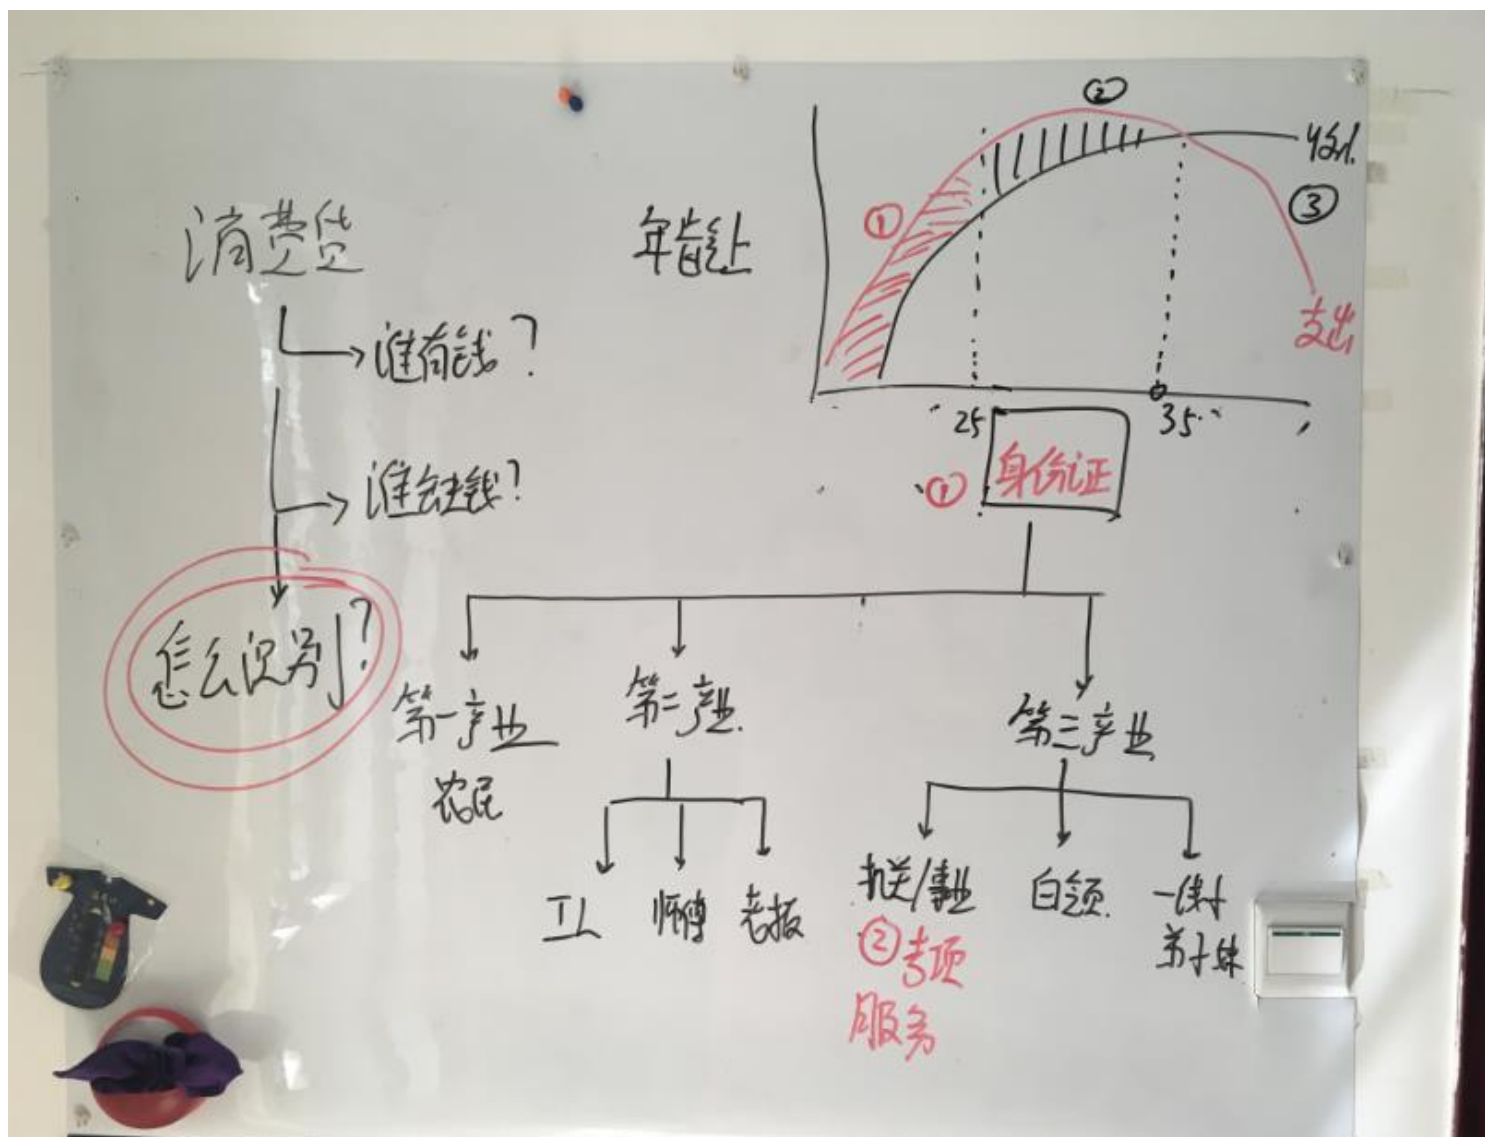 消费贷
谁有钱?
谁会主钱?
怎么识别?
年龄上
①
②
收入
③
支出
25
35
①
身份证
第一产业
农民
第二产业
工人
师傅
老板
第三产业
机关/事业
②专项
服务
白领
一体
弟子妹